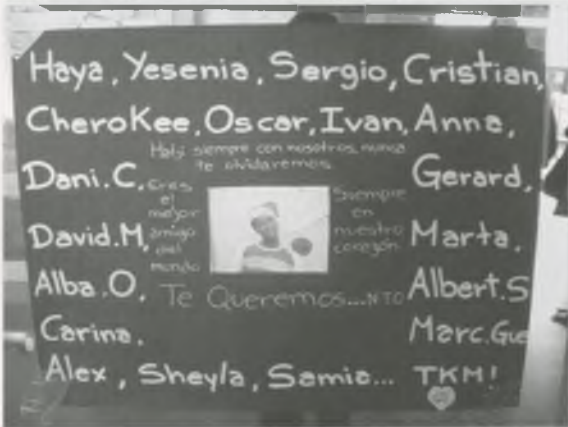 Haya, Yesenia, Sergio, Cristian,
Cherokee, Oscar, Ivan, Anna,
siempre con nosotros, nunca
te olvidaremos.
Dani.C,
Gerard,
Eres
el
mejor
amigo
del
mundo
Siempre
en
nuestro
corazón.
David.M,
Marta,
Alba.O,
Te Queremos...
Albert.S
Carina,
Marc.Gue
Alex, Sheyla, Samia... TKM!